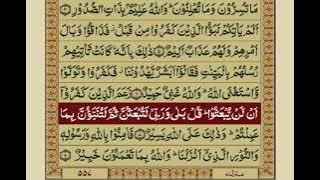 مَا تُسِرُّوْنَ وَمَا تُعْلِنُوْنَ ؕ وَاللّٰهُ عَلِيْمٌۢ بِذَاتِ الصُّدُوْرِ
اَلَمْ يَاْتِكُمْ نَبَؤُا الَّذِيْنَ كَفَرُوْا مِنْ قَبْلُ فَذَاقُوْا وَبَالَ
اَمْرِهِمْ وَلَهُمْ عَذَابٌ اَلِيْمٌ ذٰلِكَ بِاَنَّهٗ كَانَتْ تَّاْتِيْهِمْ
رُسُلُهُمْ بِالْبَيِّنٰتِ فَقَالُوْۤا اَبَشَرٌ يَّهْدُوْنَنَا فَكَفَرُوْا وَتَوَلَّوْا
وَّاسْتَغْنَى اللّٰهُ ؕ وَاللّٰهُ غَنِيٌّ حَمِيْدٌ زَعَمَ الَّذِيْنَ كَفَرُوْۤا
اَنْ لَّنْ يُّبْعَثُوْا ؕ قُلْ بَلٰى وَرَبِّيْ لَتُبْعَثُنَّ ثُمَّ لَتُنَبَّؤُنَّ بِمَا
عَمِلْتُمْ ؕ وَذٰلِكَ عَلَى اللّٰهِ يَسِيْرٌ فَاٰمِنُوْا بِاللّٰهِ وَرَسُوْلِهٖ
وَالنُّوْرِ الَّذِيْۤ اَنْزَلْنَا ؕ وَاللّٰهُ بِمَا تَعْمَلُوْنَ خَبِيْرٌ
۵۵۷